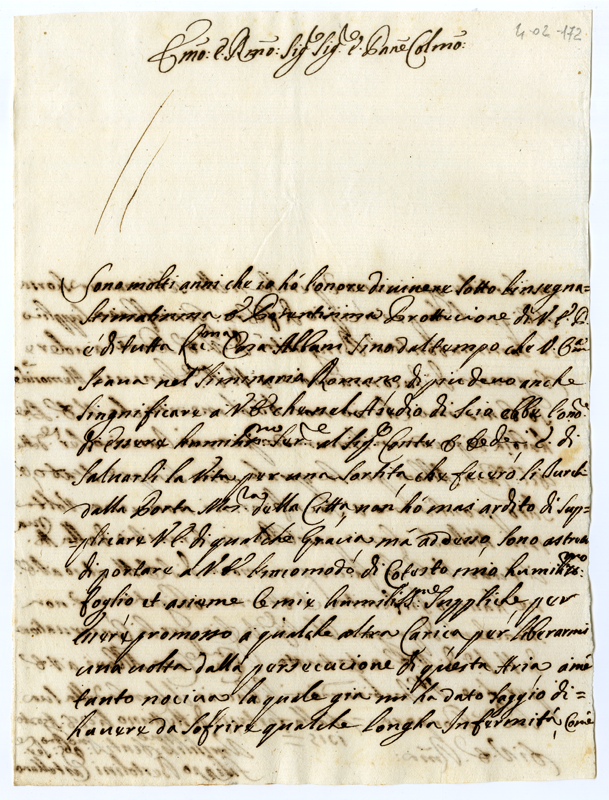 4-02-172
Emo: e Rmo: Sigre Sigre e Prone Colmo:
Sono molti anni che io hò l'onore di vivere sotto l'insegna=
stimatissima e Potentissima Prottecione di V. E.
e di tutta Casa Albani sino dal tempo che V. Em
stava nel Siminario Romano di piu devo anche
singnificare a V. E. che nel Asedio di Scio ebbe l'ono:
di essere humilismo Serre al Sigr Conte e di
salvarli la Vita per una sortita che fecero li Turchi
dalla Porta della Città, non hò mai ardito di sup=
plicare V. E. di qualche Gracia mà addesso sono astretto
di portare a V. E. l'incomodo di Cotesto mio humilismo:
foglio et asieme le mie humilisme: Suppliche per
essere promosso a qualche altra Carica per liberarmi
una volta dalla persecucione di questa Aria a me
tanto nociva la quale gia mi ha dato saggio di=
havere da sofrire qualche longha Infermità, Come